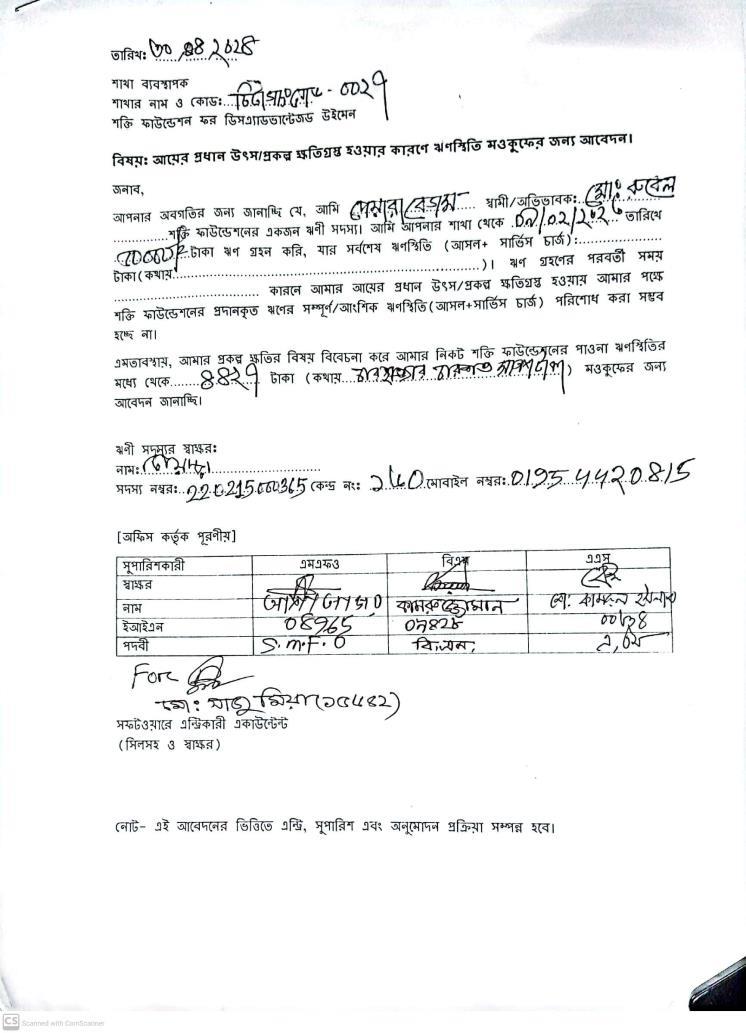 তারিখ: ৩০.০৪.২০২৪
শাখা ব্যবস্থাপক
শাখার নাম ও কোড:... - 0029
শক্তি ফাউন্ডেশন ফর ডিসএ্যাডভান্টেজড উইমেন
বিষয়: আয়ের প্রধান উৎস/প্রকল্প ক্ষতিগ্রস্ত হওয়ার কারণে ঋণস্থিতি মওকুফের জন্য আবেদন।
জনাব,
আপনার অবগতির জন্য জানাচ্ছি যে, আমি পেয়ারা বেগম স্বামী/অভিভাবক: মোঃ রুবেল
শক্তি ফাউন্ডেশনের একজন ঋণী সদস্য। আমি আপনার শাখা থেকে তারিখে
টাকা ঋণ গ্রহন করি, যার সর্বশেষ ঋণস্থিতি (আসল+ সার্ভিস চার্জ):
টাকা(কথায়)। ঋণ গ্রহণের পরবর্তী সময়
কারনে আমার আয়ের প্রধান উৎস/প্রকল্প ক্ষতিগ্রস্ত হওয়ায় আমার পক্ষে
শক্তি ফাউন্ডেশনের প্রদানকৃত ঋণের সম্পূর্ণ/আংশিক ঋণস্থিতি(আসল+সার্ভিস চার্জ) পরিশোধ করা সম্ভব
হচ্ছে না।
এমতাবস্থায়, আমার প্রকল্প ক্ষতির বিষয় বিবেচনা করে আমার নিকট শক্তি ফাউন্ডেশনের পাওনা ঋণস্থিতির
মধ্যে থেকে ৪৪২৭ টাকা (কথায়) মওকুফের জন্য
আবেদন জানাচ্ছি।
ঋণী সদস্যের স্বাক্ষর:
নাম:
সদস্য নম্বর: 220215000365 কেন্দ্র নং: ২৬০ মোবাইল নম্বর: 01954420815
[অফিস কর্তৃক পূরণীয়]
সুপারিশকারী এমএফও বিএম এএস
স্বাক্ষর
নাম কামরুজ্জোমান
ইআইএন 08965
পদবী S.M.F.O বি,এম,
For
মো: রাজু মিয়া(১৫৪৫২)
সফটওয়ারে এন্ট্রিকারী একাউন্টেন্ট
(সিলসহ ও স্বাক্ষর)
নোট- এই আবেদনের ভিত্তিতে এন্ট্রি, সুপারিশ এবং অনুমোদন প্রক্রিয়া সম্পন্ন হবে।
CS Scanned with CamScanner